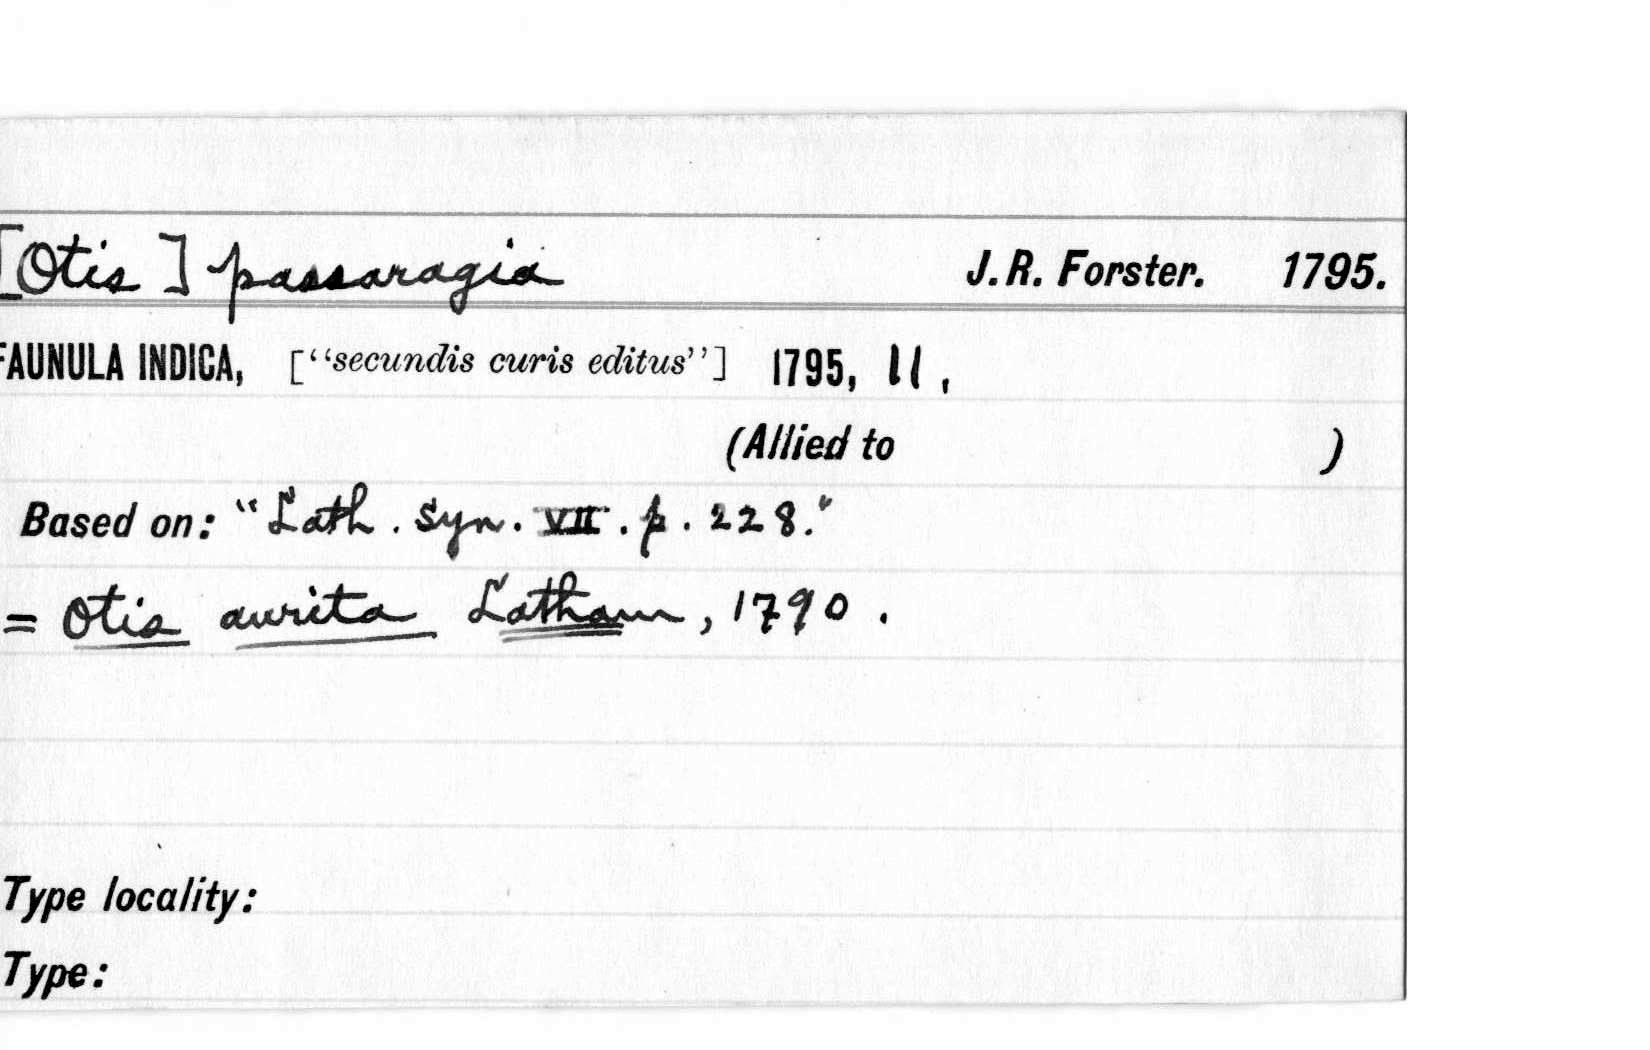 [Otis] passaragia J. R. Forster. 1795.
FAUNULA INDICA, ["secundis curis editus"] 1795, 11,
(Allied to )
Based on: "Lath. Syn. VII. p. 228."
= Otis aurita Latham, 1790.
Type locality:
Type: